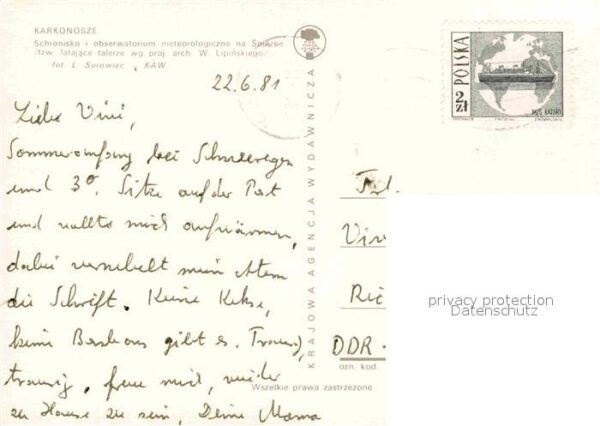 KARKONOSZE
Schronisko i obserwatorium meteorologiczne na Śnieżce
/tzw. latające talerze wg proj. arch. W. Lipińskiego/
fot. L. Surowiec, KAW
22.6.81
Liebe Vivi,
Sommeranfang bei Schneeregen
und 3°. Sitze auf der Post
und wollte mich aufwärmen,
dabei vernebelt mein Atem
die Schrift. Keine Kekse,
keine gibt es. Traurig,
traurig. freue mich, wieder
zu Hause zu sein, Deine Mama
KRAJOWA AGENCJA WYDAWNICZA
POLSKA
2 zł
M/S BATORY
Frl.
Viv
Ric
DDR -
ozn. kod.
Wszelkie prawa zastrzeżone
privacy protection
Datenschutz